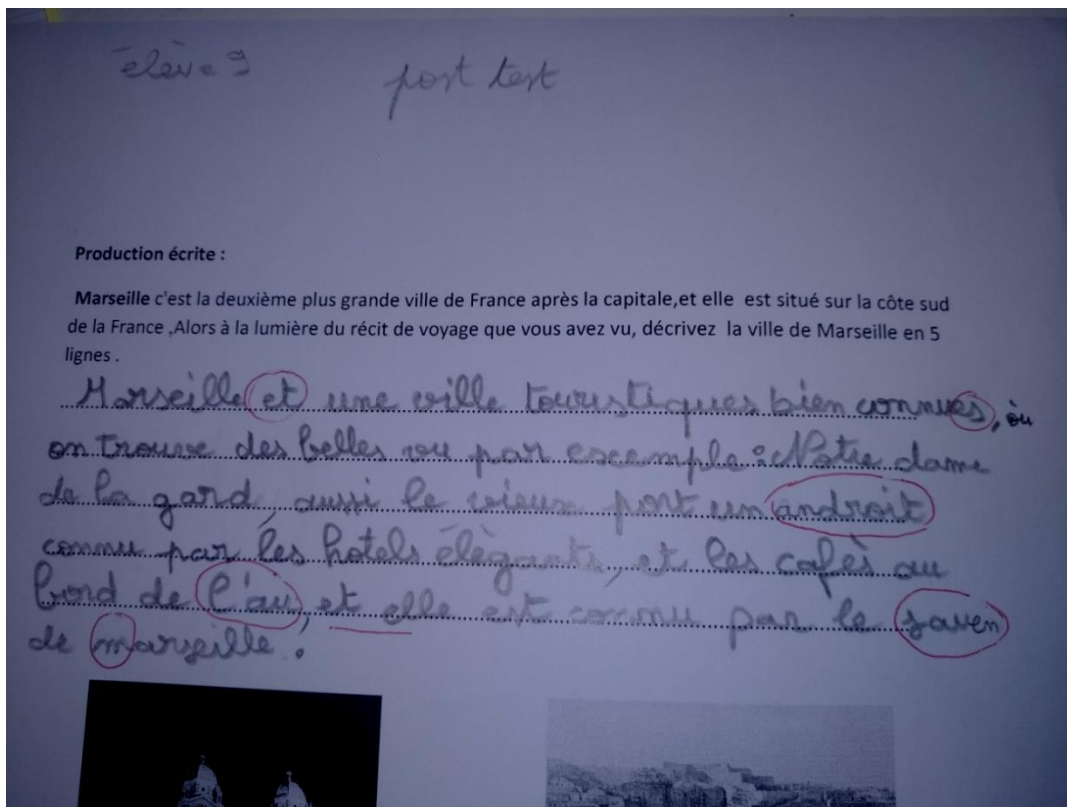 élève 9 post test
Production écrite :
Marseille c'est la deuxième plus grande ville de France après la capitale,et elle est situé sur la côte sud
de la France .Alors à la lumière du récit de voyage que vous avez vu, décrivez la ville de Marseille en 5
lignes .
Marseille et une ville touristiques bien connues, où
on trouve des belles vu par escemple : Notre dame
de la gard, aussi le vieux port un androit
connu par les hotels élègants, et les cafès au
bord de l'au, et elle est connu par le saven
de marseille.